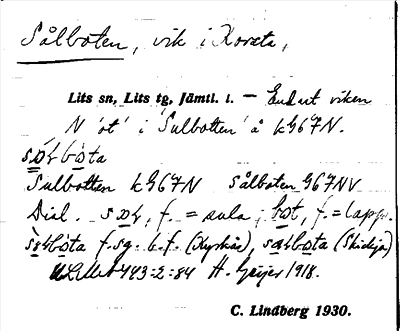 Sålboten, vik i Korsta,
Lits sn, Lits tg, Jämtl. l. — Endut viken
N 'ot' i 'Sulbotten' å k967N.
Sulbotten k967N Sålboten 967NV
Dial. f. = sula; bot, f. = lapp.
f. sg. b. f. (Kyrkås), (Skidsjö)
443:2:84 H. Geijer 1918.
C. Lindberg 1930.